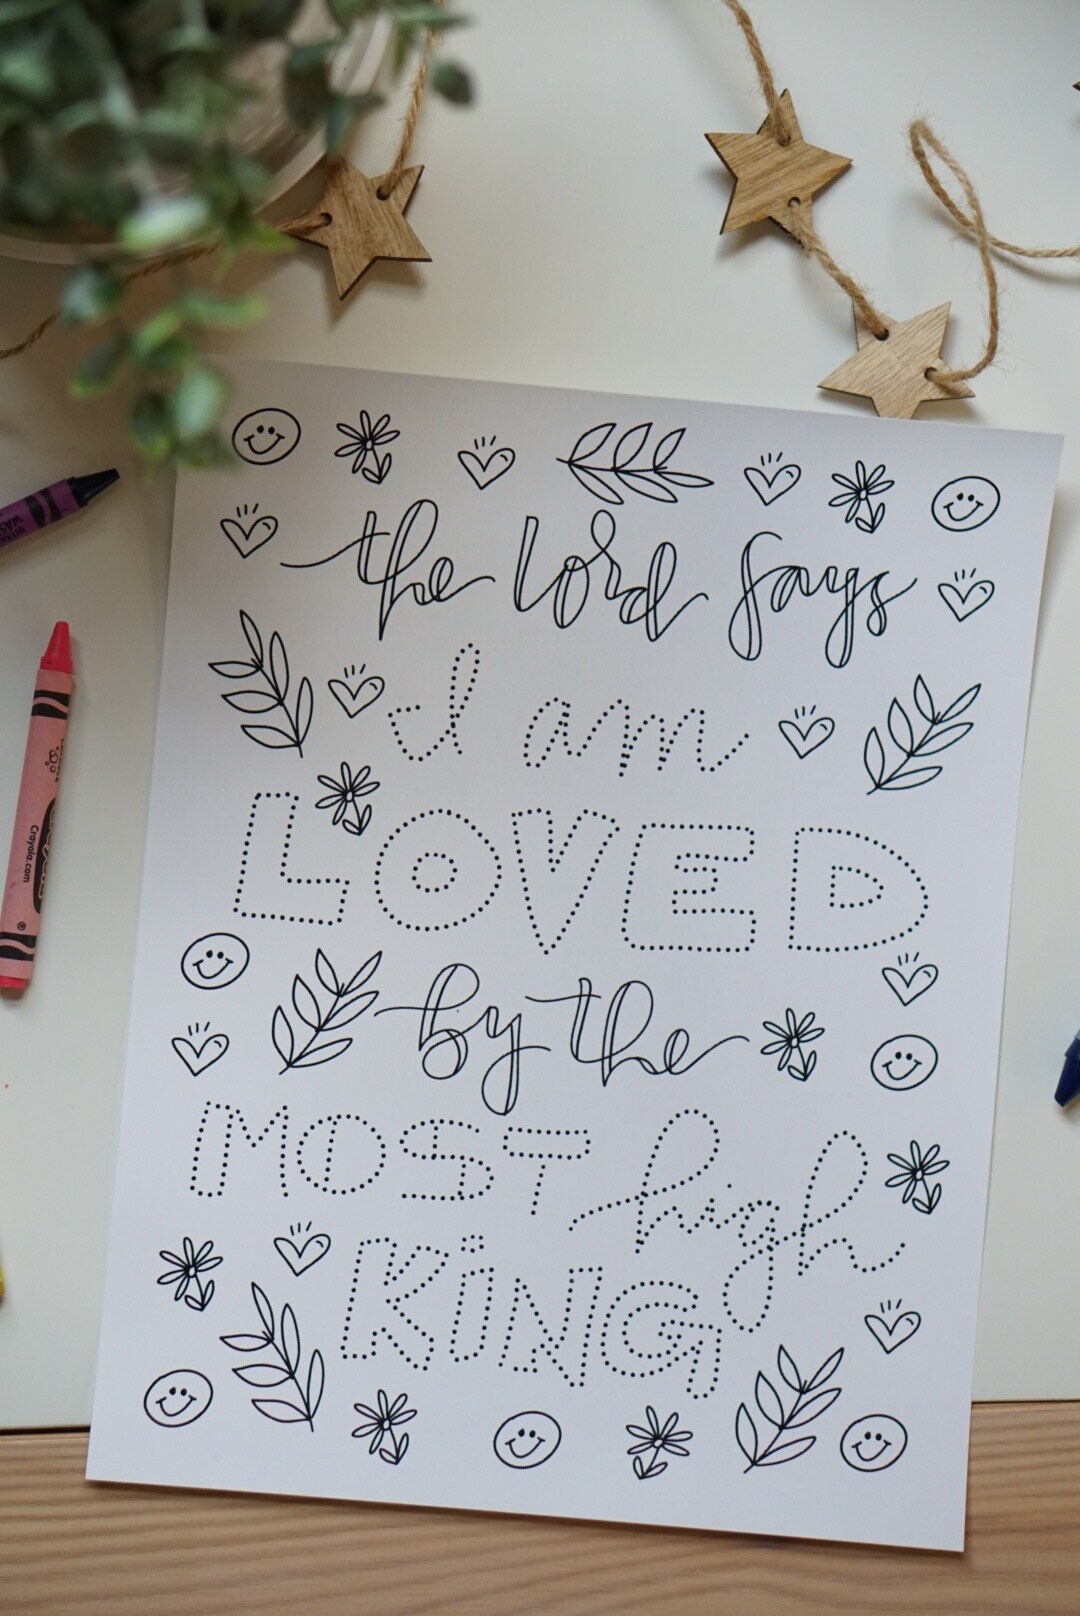 the lord says
I am
LOVED
by the
MOST high
KiNG
Crayola.com